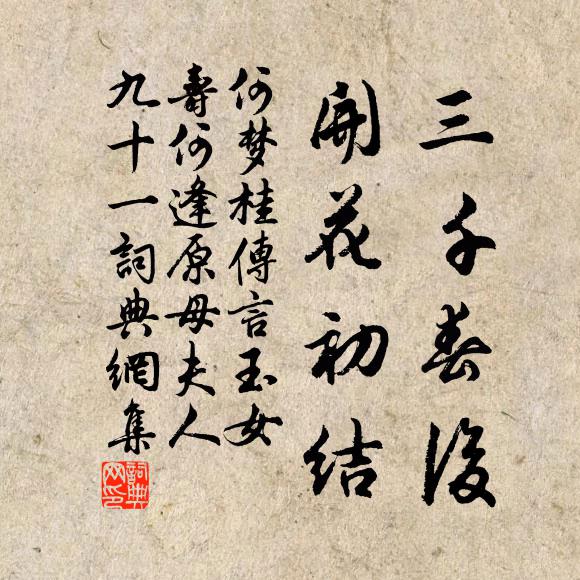 三千春後
開花初結
何梦桂傳言玉女
壽何逢原母夫人
九十一詞典網集
詞典
网印